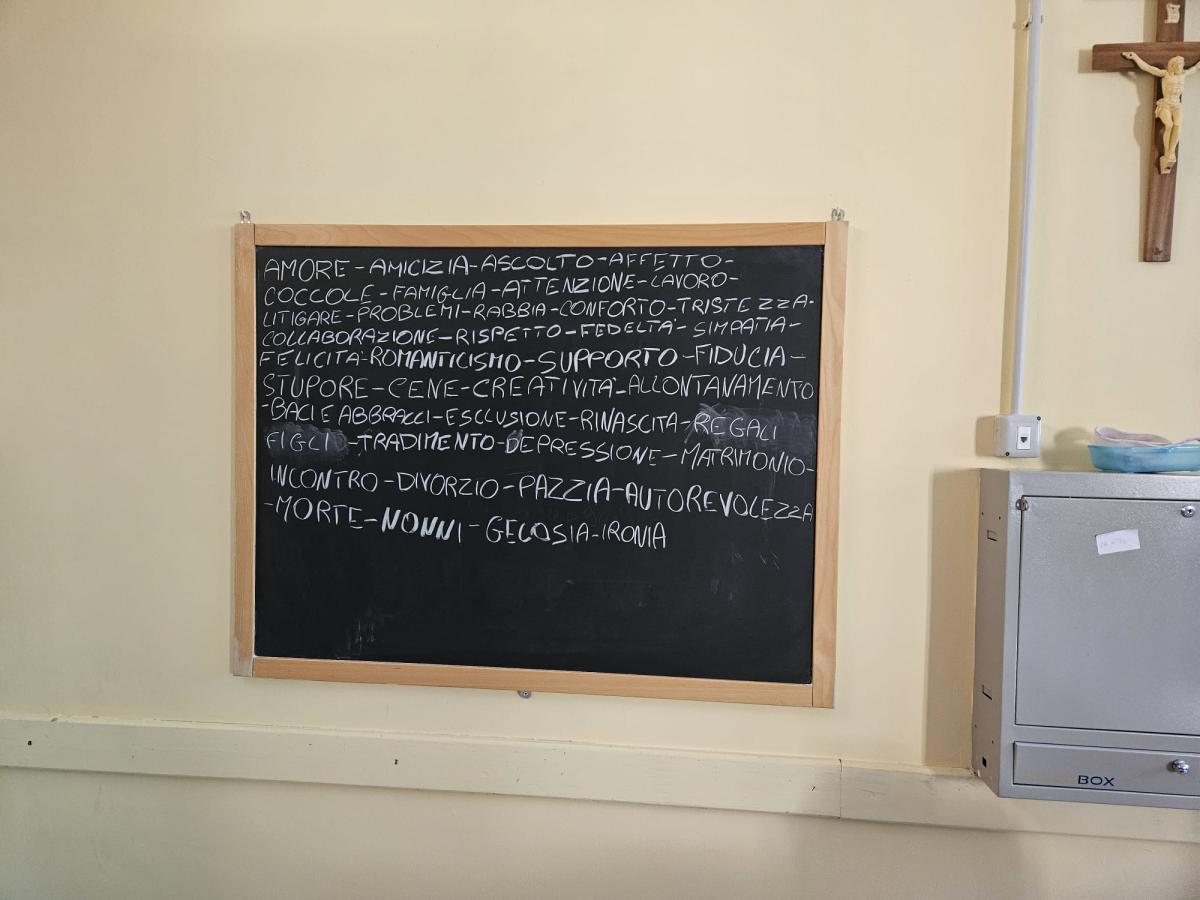 AMORE-AMICIZIA-ASCOLTO-AFFETTO-
COCCOLE-FAMIGLIA-ATTENZIONE-LAVORO-
LITIGARE-PROBLEMI-RABBIA-CONFORTO-TRISTEZZA-
COLLABORAZIONE-RISPETTO-FEDELTÀ-SIMPATIA-
FELICITÀ-ROMANTICISMO-SUPPORTO-FIDUCIA-
STUPORE-CENE-CREATIVITÀ-ALLONTANAMENTO
-BACI E ABBRACCI-ESCLUSIONE-RINASCITA-REGALI
FIGLI-TRADIMENTO-DEPRESSIONE-MATRIMONIO-
INCONTRO-DIVORZIO-PAZZIA-AUTOREVOLEZZA
-MORTE-NONNI-GELOSIA-IRONIA
BOX